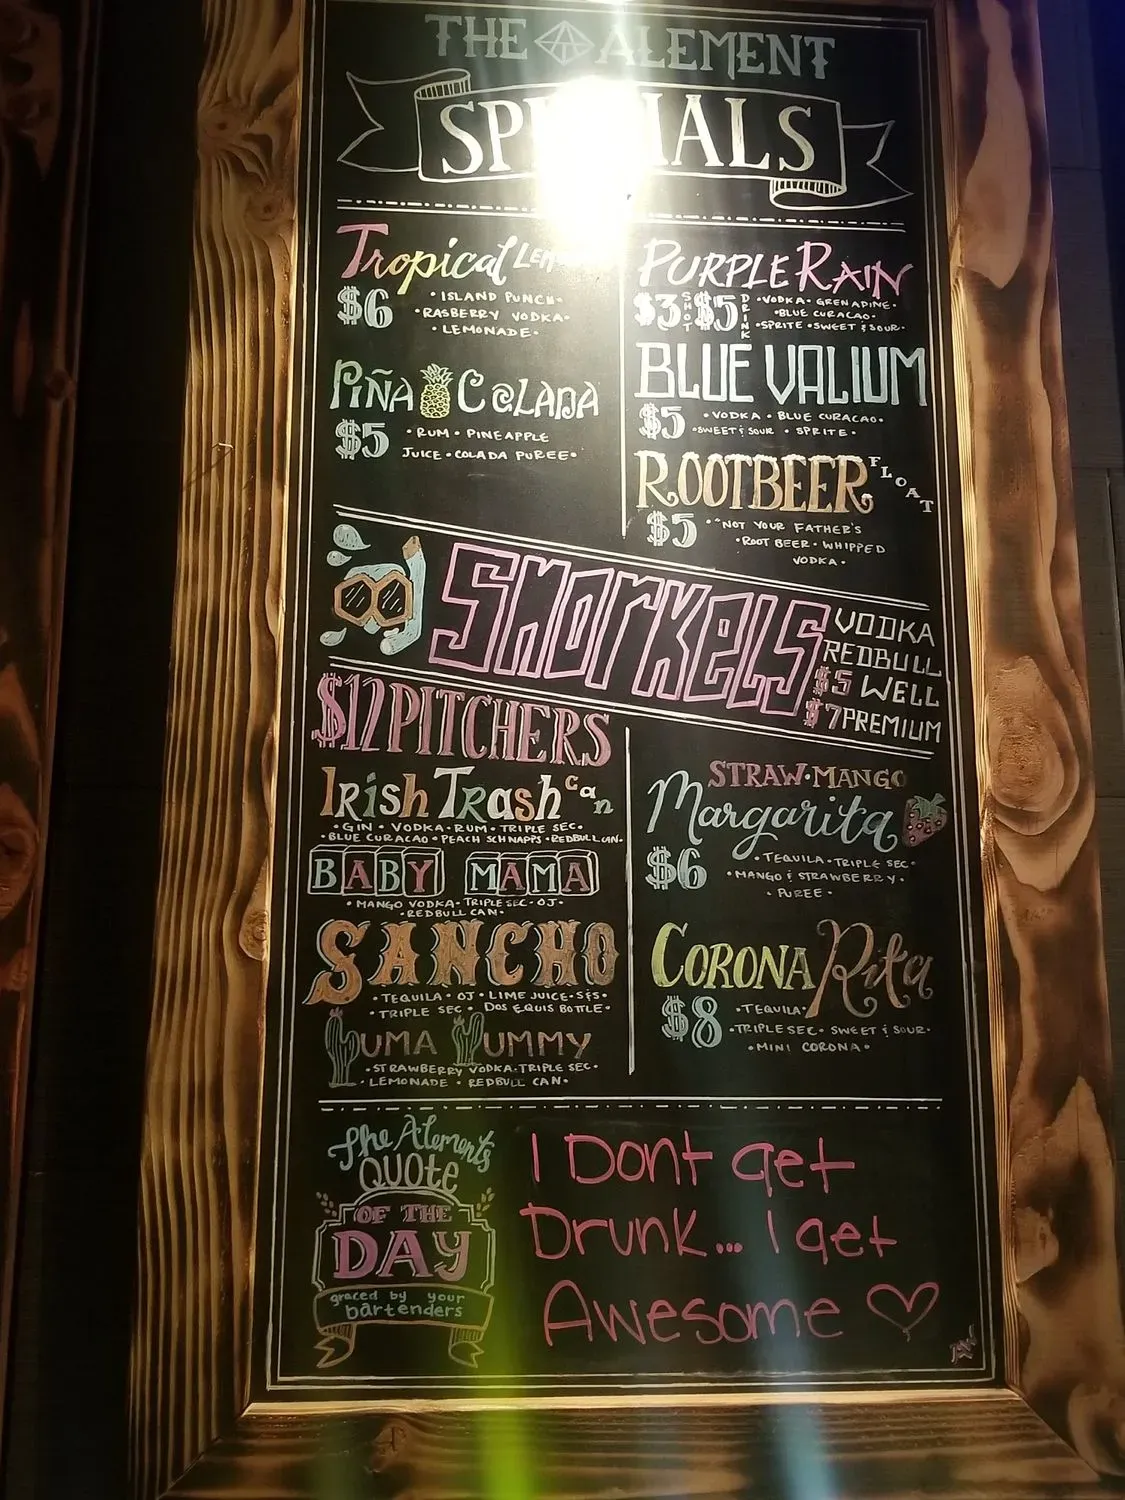 THE ALEMENT
SP IALS
Tropical
$6
• ISLAND PUNCH•
•RASBERRY VODKA•
• LEMONADE•
PIÑA COLADA
$5
• RUM • PINEAPPLE
JUICE • COLADA PUREE•
PURPLE RAIN
$3 SHOT $5 DRINK
•VODKA• GRENADINE•
•BLUE CURACAO•
•SPRITE •SWEET & SOUR•
BLUE VALIUM
$5
• VODKA • BLUE CURACAO•
•SWEET & SOUR • SPRITE•
ROOTBEER FLOAT
$5
•"NOT YOUR FATHER'S
•ROOT BEER• WHIPPED
VODKA•
SNORKELS
VODKA
REDBULL
$5 WELL
$7 PREMIUM
$12 PITCHERS
Irish Trash can
• GIN • VODKA • RUM • TRIPLE SEC•
•BLUE CURACAO •PEACH SCHNAPPS •REDBULL CAN•
BABY MAMA
• MANGO VODKA• TRIPLE SEC• OJ•
• REDBULL CAN•
SANCHO
• TEQUILA • OJ • LIME JUICE • S&S•
• TRIPLE SEC• DOS EQUIS BOTTLE•
UMA UMMY
•STRAWBERRY VODKA•TRIPLE SEC•
• LEMONADE • REDBULL CAN•
STRAW•MANGO
Margarita
$6
• TEQUILA•TRIPLE SEC•
•MANGO & STRAWBERRY•
• PUREE •
CORONA Rita
$8
•TEQUILA•
•TRIPLE SEC• SWEET & SOUR•
•MINI CORONA•
The Alements
QUOTE
OF THE
DAY
graced by your
bartenders
I Dont get
Drunk... I get
Awesome ♡